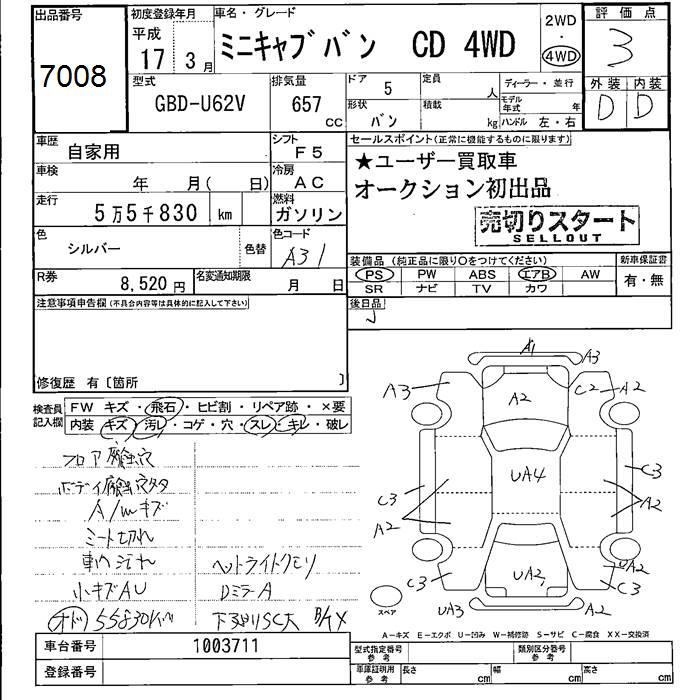 出品番号
7008
初度登録年月
平成
17年 3月
車名・グレード
ミニキャブバン CD 4WD
2WD
・
4WD
評価点
3
外装 内装
D D
型式
GBD-U62V
排気量
657 CC
ドア 5
形状 バン
定員 人
積載 kg
ディーラー・並行
モデル年式 年
ハンドル 左・右
車歴 自家用
シフト F5
車検 年 月( 日)
冷房 AC
走行 5万5千830 km
燃料 ガソリン
色 シルバー
色替
色コード A31
R券 8,520円
名変通知期限 月 日
セールスポイント(正常に機能するものに限ります)
★ユーザー買取車
オークション初出品
売切りスタート
SELLOUT
装備品(純正品に限り○をつけてください)
PS PW ABS エアB AW
SR ナビ TV カワ
新車保証書
有・無
後日品
注意事項申告欄(不具合内容等は具体的に記入して下さい)
修復歴 有〔箇所 〕
検査員記入欄
FW キズ・飛石・ヒビ割・リペア跡・×要
内装 キズ・汚レ・コゲ・穴・スレ・キレ・破レ
フロア腐蝕穴
ボデイ腐蝕穴タタ
A/mキズ
ミート切れ
車内汚れ
小キズAU
オド 55830Km
ヘットライトクモリ
Dミラー A
下廻りSC大
A1 A3
A3 A2 C2 A2
UA4
C3 A2 C3 A2
C3 UA2 UA2 C3
UA3 A2
スペア
A-キズ E-エクボ U-凹み W-補修跡 S-サビ C-腐食 XX-交換済
車台番号 1003711
登録番号
型式指定番号 参考
類別区分番号 参考
車庫証明用 参考 長さ cm 幅 cm 高さ cm